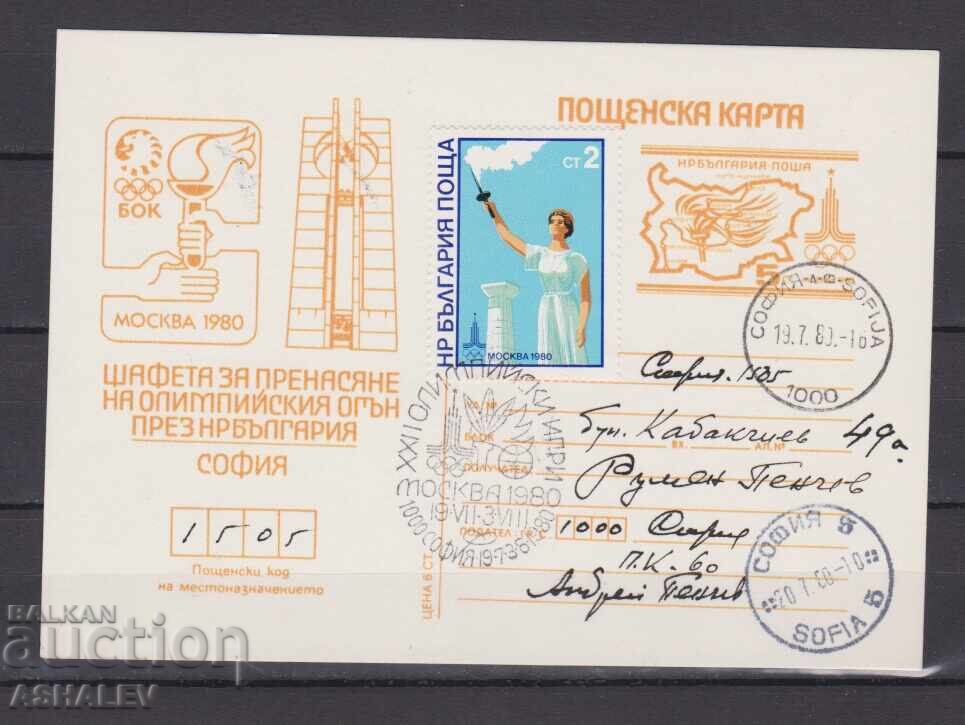 ПОЩЕНСКА КАРТА
БОК
МОСКВА 1980
ЩАФЕТА ЗА ПРЕНАСЯНЕ
НА ОЛИМПИЙСКИЯ ОГЪН
ПРЕЗ НРБЪЛГАРИЯ
СОФИЯ
1505
Пощенски код
на местоназначението
НР БЪЛГАРИЯ ПОЩА
СТ 2
МОСКВА 1980
НР БЪЛГАРИЯ ПОЩА
5
СОФИЯ SOFIJA
19.7.80.-16
1000
София. 1505
бул. Кабакчиев 49а
БЛОК ВХ. АП.№
ПОЛУЧАТЕЛ
Румен Пенчев
ПОДАТЕЛ
1000 София
П.К. 60
Андрей Пенчев
ЦЕНА 6 СТ
XXII ОЛИМПИЙСКИ ИГРИ
МОСКВА 1980
19.VII-3.VIII
1000 СОФИЯ
СОФИЯ 5
20.7.80-10
SOFIA 5
BALKAN
auction
ASHALEV